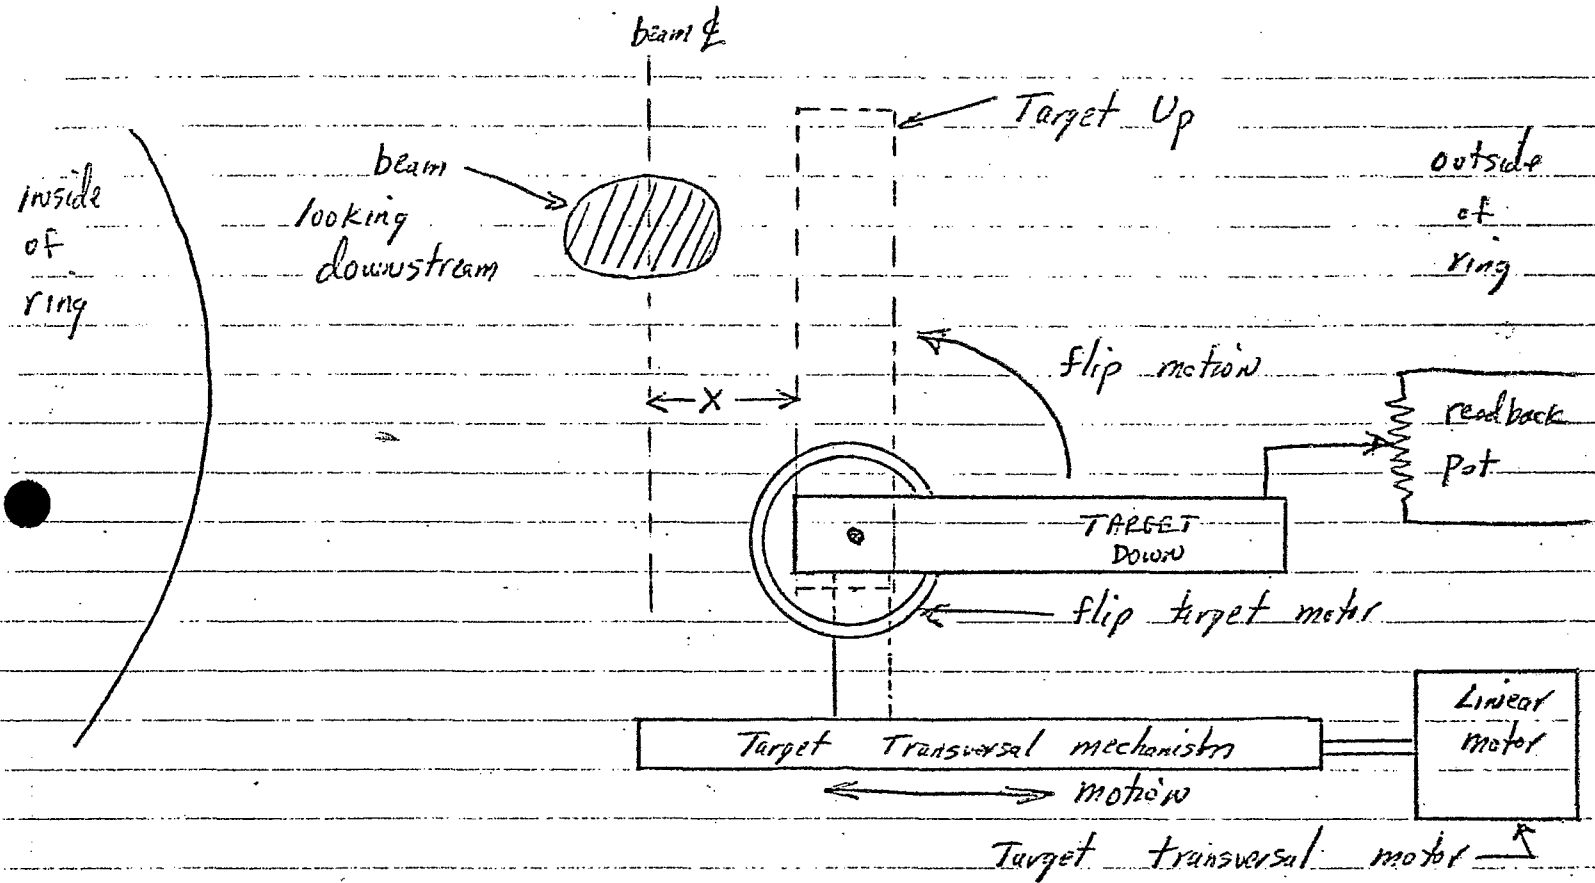 beam ℄
Target Up
beam
looking
downstream
inside
of
ring
outside
of
ring
flip motion
X
readback
pot
TARGET
DOWN
flip target motor
Linear
motor
Target Transversal mechanism
motion
Target transversal motor